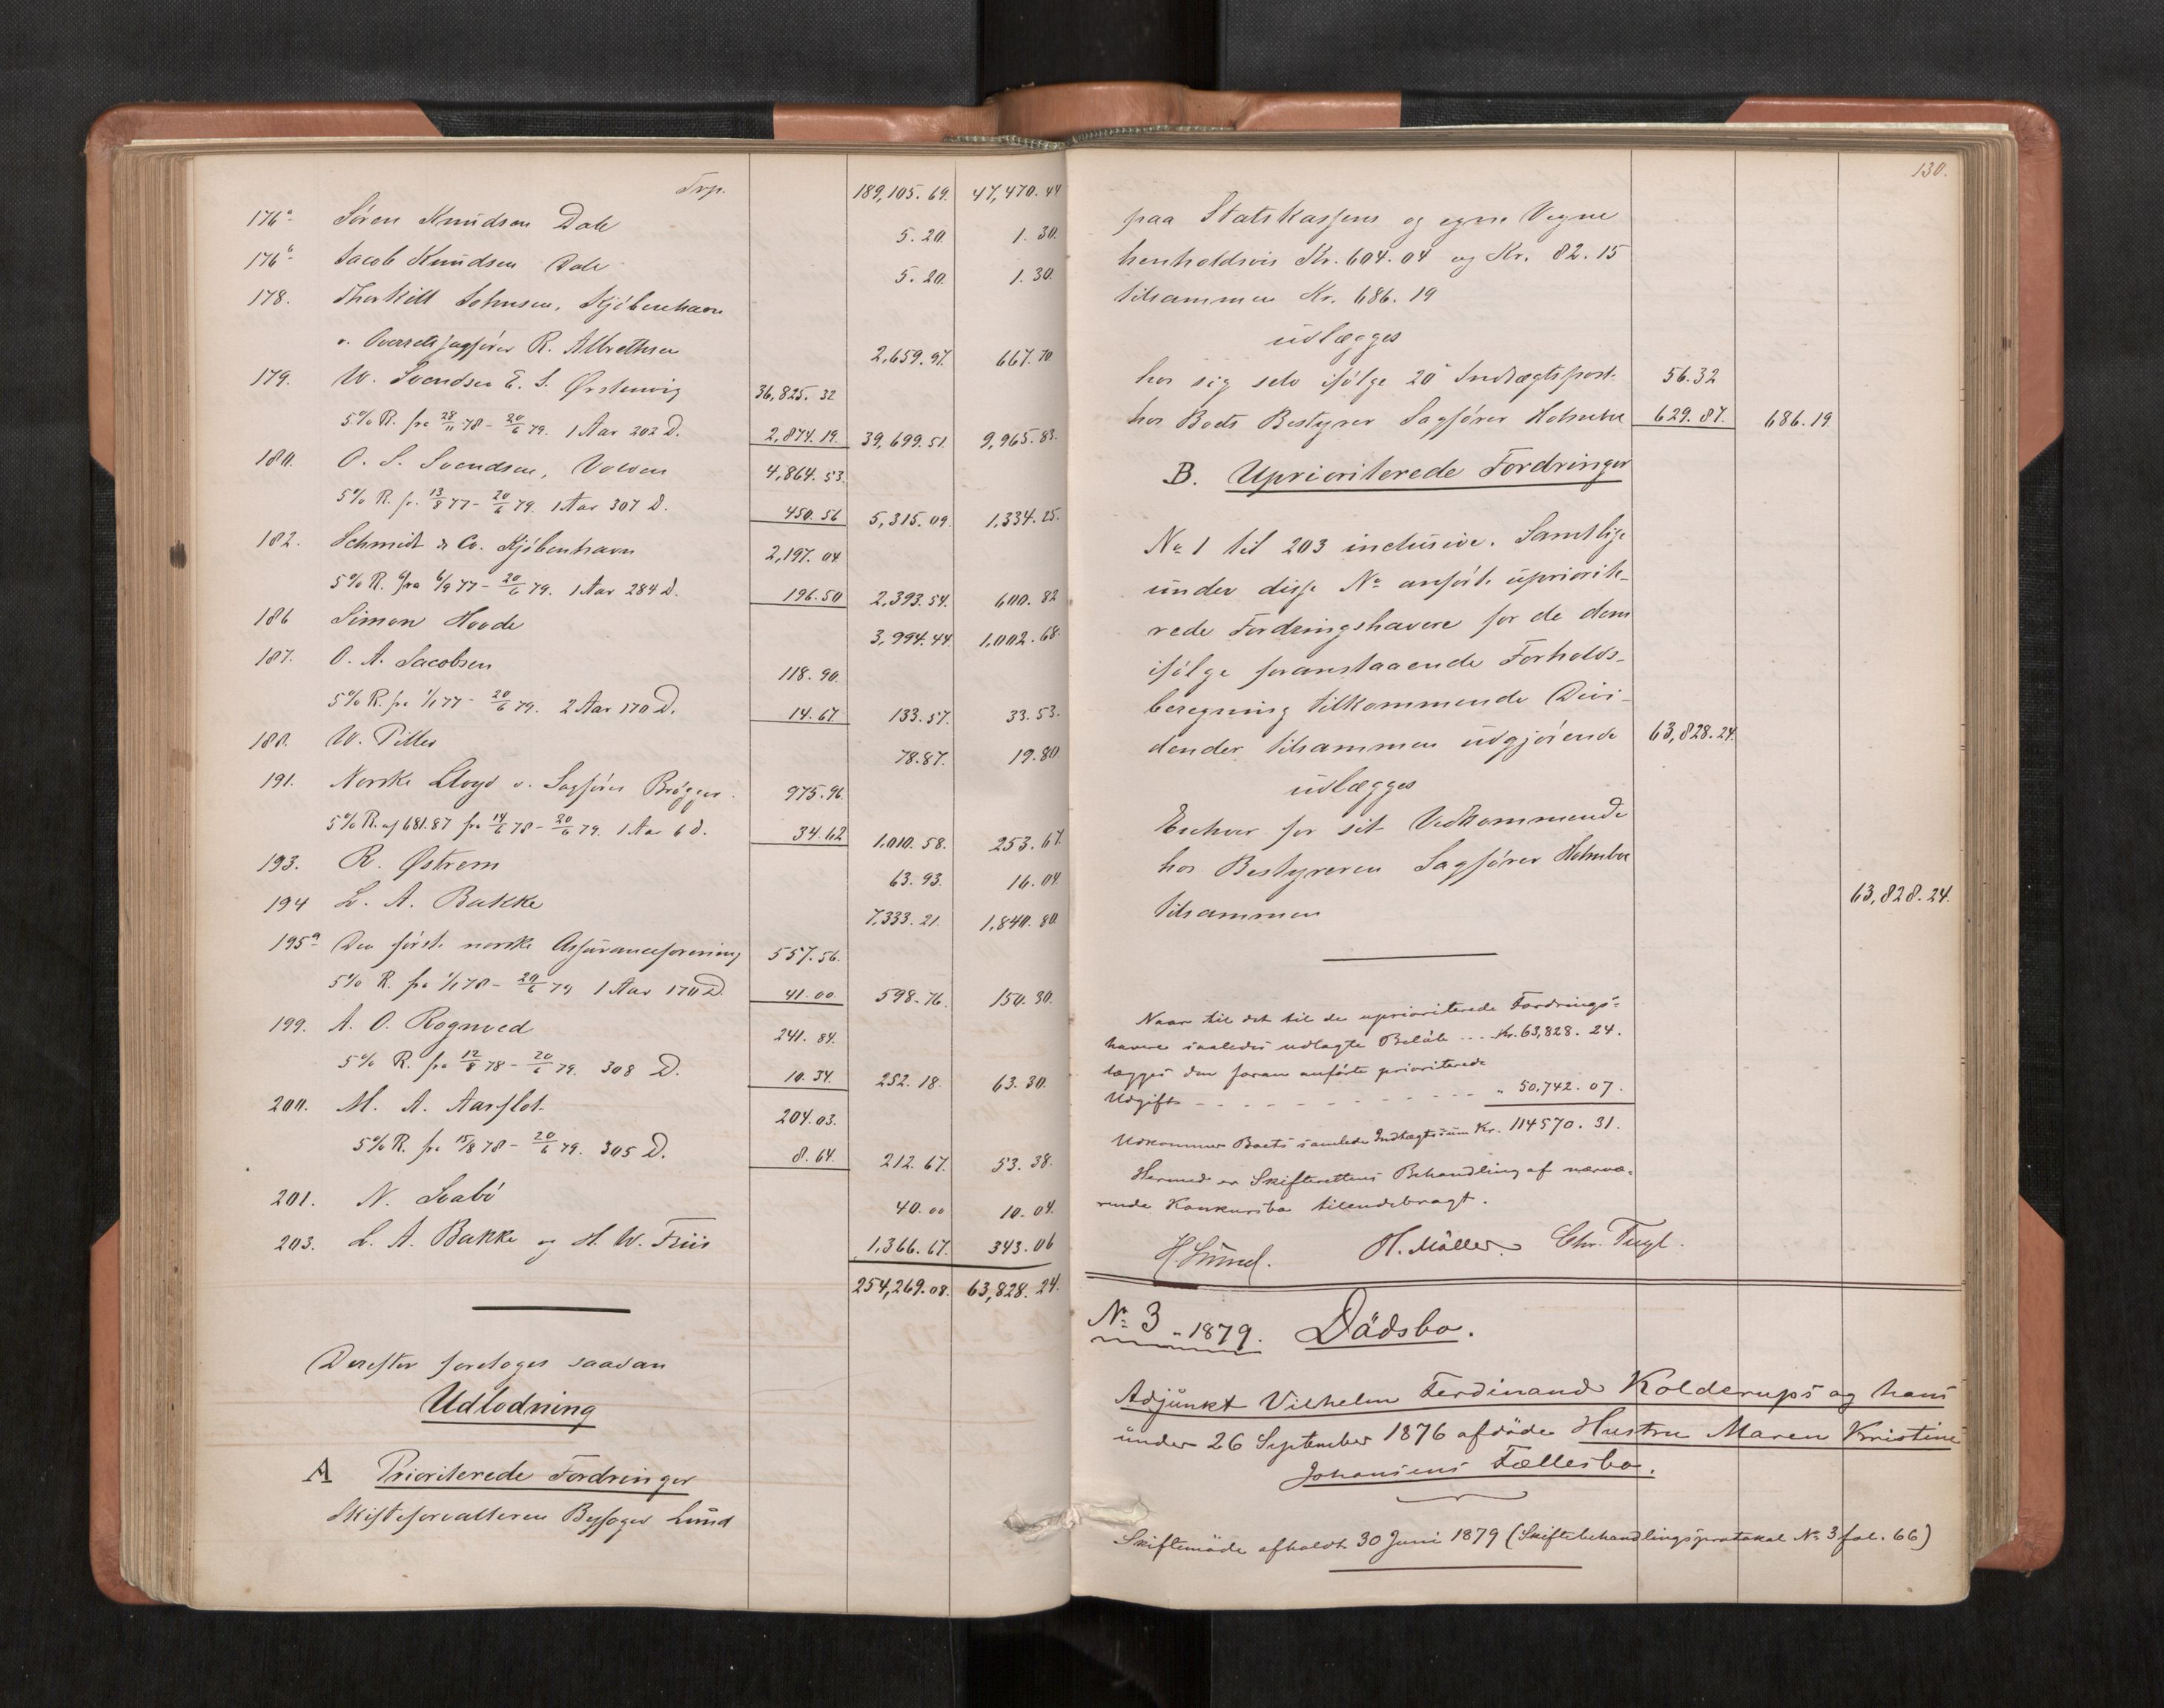 Trp. 189,105.69. 47,470.44
176a Søren Knudsen Dale 5.20. 1.30.
176b Jacob Knudsen Dale 5.20. 1.30.
178. Thorkill Johnsen, Kjøbenhavn
v. Overretssagfører R. Albrethsen 2,659.97. 667.70
179. W. Svendsen E. S. Ørstenvig 36,825.32
5% R. fra 28/11 78 - 20/6 79. 1 Aar 202 D. 2,874.19. 39,699.51. 9,965.83.
180. O. S. Svendsen, Volden 4,864.53.
5% R. fr. 13/8 77 - 20/6 79. 1 Aar 307 D. 450.56 5,315.09. 1,334.25.
182. Schmidt & Co. Kjøbenhavn 2,197.04
5% R. fra 6/9 77 - 20/6 79. 1 Aar 284 D. 196.50 2,393.54. 600.82
186 Simon Hovde 3,994.44 1,002.68.
187. O. A. Jacobsen 118.90.
5% R. fra 1/1 77 - 20/6 79. 2 Aar 170 D. 14.67 133.57. 33.53.
188. W. Piller 78.87. 19.80
191. Norske Lloyd v. Sagfører Brøgger 975.96.
5% R. af 681.87 fra 14/6 78 - 20/6 79. 1 Aar 6 d. 34.62 1,010.58. 253.67.
193. R. Østrem 63.93. 16.04
194 L. A. Bakke 7,333.21. 1,840.80.
195a Den første norske Assuranceforening 557.56.
5% R. fra 1/1 78 - 20/6 79 1 Aar 170 D. 41.00 598.76. 150.30.
199. A. O. Rognved 241.84.
5% R. fra 12/8 78 - 20/6 79. 308 D. 10.34. 252.18. 63.30.
200. M. A. Aarflot 204.03.
5% R. fra 15/8 78 - 20/6 79. 305 D. 8.64. 212.67. 53.38.
201. N. Svabø 40.00 10.04.
203. L. A. Bakke og H. W. Friis 1,366.67. 343.06
254,269.08. 63,828.24.
Derefter foretoges saadan
Udlodning
A Prioriterede Fordringer
Skifteforvalteren Byfoged Lund
130.
paa Statskassens og egne Vegne
henholdsvis Kr. 604.04 og Kr. 82.15
tilsammen Kr. 686.19
udlægges
hos sig selv ifølge 20 Indtægtspost 56.32
hos Boets Bestyrer Sagfører Holmboe 629.87. 686.19
B. Uprioriterede Fordringer
No 1 til 203 inclusive. Samtlige
under disse No anførte upriorite-
rede Fordringshavere for de dem
ifølge foranstaaende Forholds-
beregning tilkommende Divi-
dender tilsammen udgjørende 63,828.24.
udlægges
Enhver for sit Vedkommende
hos Bestyreren Sagfører Holmboe
tilsammen 63,828.24.
Naar til det til de uprioriterede Fordrings-
havere saaledes udlagte Beløb ... Kr. 63,828.24.
lægges den foran anførte prioriterede
Udgift - - - - - - - - - - " 50,742.07.
Udkommer Boets samlede Indtægtssum Kr. 114570.31.
Hermed er Skifterettens Behandling af nærvæ-
rende Konkursbo tilendebragt.
H Lund. H. Møller. Chr. Fugl.
No 3 - 1879. Dødsbo.
Adjunkt Vilhelm Ferdinand Kolderups og hans
under 26 September 1876 afdøde Hustru Maren Kristine
Johansens Fællesbo.
Skiftemøde afholdt 30 Juni 1879 (Skiftebehandlingsprotokol No 3 fol. 66)